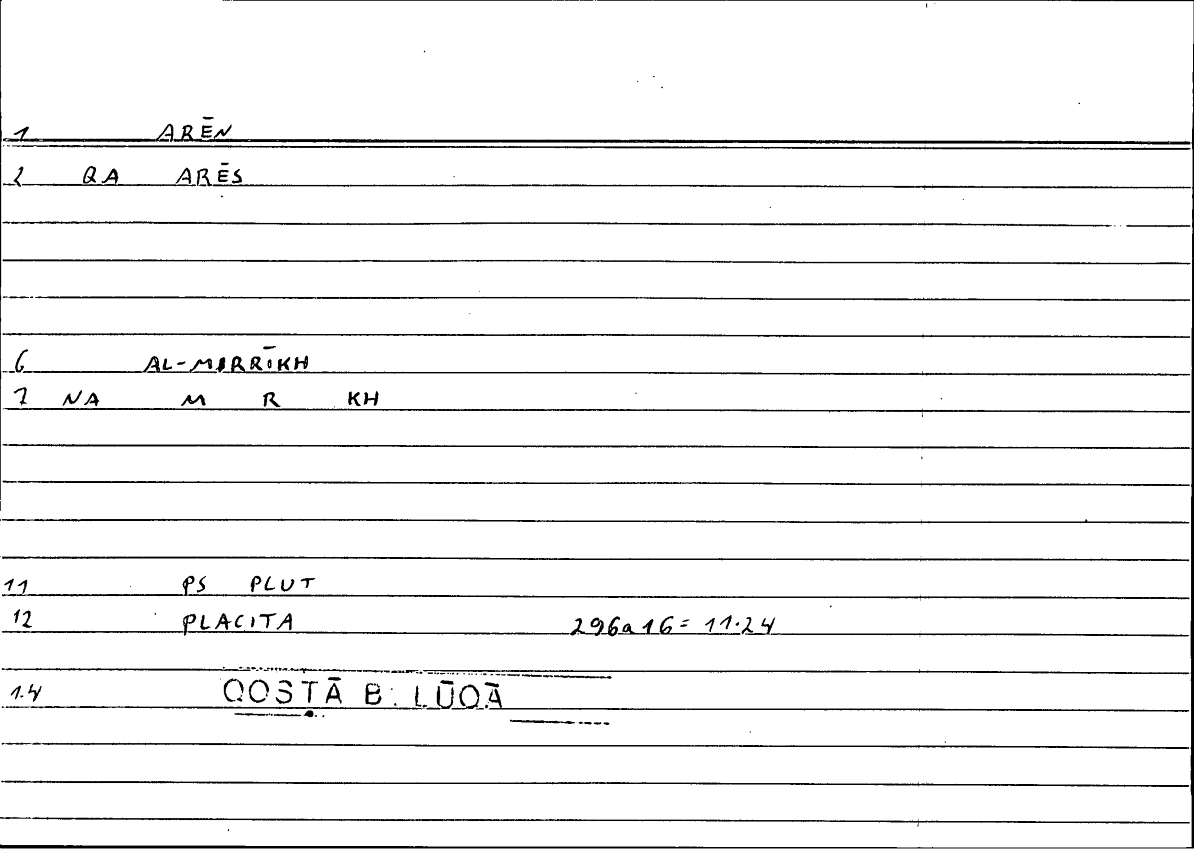 1 ARĒN
2 QA ARĒS
6 AL-MIRRĪKH
7 NA M R KH
11 PS PLUT
12 PLACITA 296a16=11.24
14 QOSṬĀ B. LŪQĀ